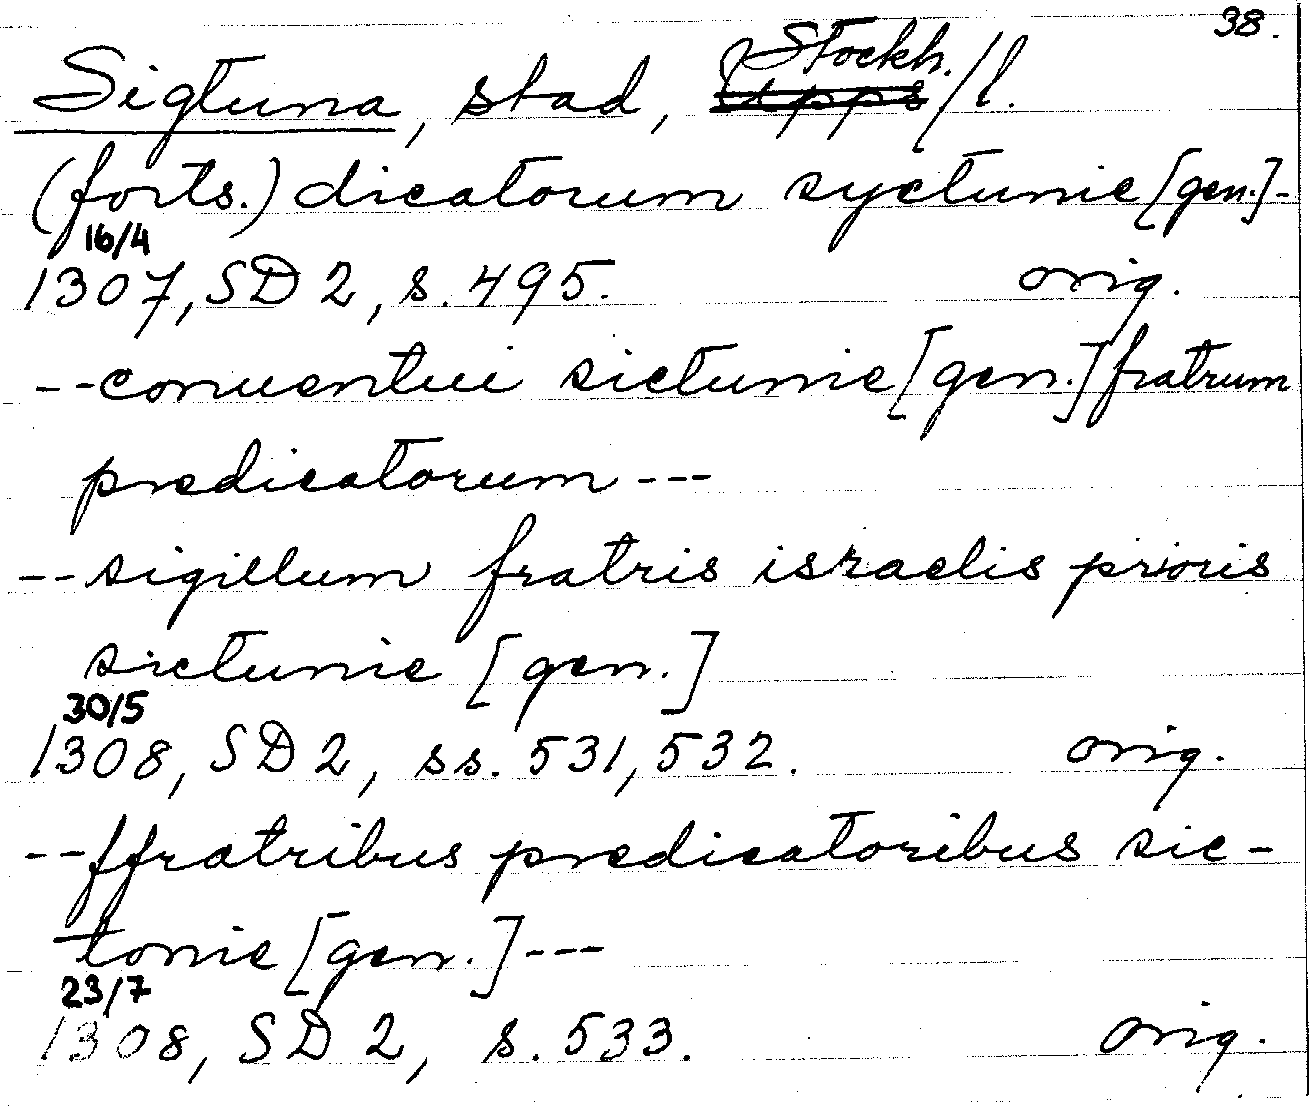 38.
Stockh.
Sigtuna, stad, Upps/l.
(forts.) dicatorum syctunie [gen.]-
16/4
1307, SD 2, s. 495. orig.
--conuentui sictunie [gen.] fratrum
predicatorum---
--sigillum fratris israelis prioris
sictunie [gen.]
30/5
1308, SD 2, ss. 531, 532. orig.
--ffratribus predicatoribus sic-
tonie [gen.]---
23/7
1308, SD 2, s. 533. orig.